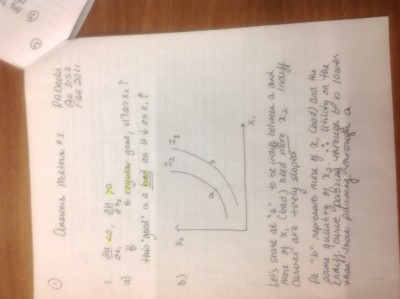 ①
Answers Midterm #1
Eco 3152
Fall 2011
1. ∂U/∂x₁ < 0, ∂U/∂x₂ > 0
a) is regular good, U↑ as x₂↑
this "good" is a bad as U↓ as x₁↑
b)
x₂
I₂ I₁
a b
x₁
Let's start at "a" to be indiff between a and
more of x₁ (bad) need more x₂. Indiff
curves are +vely sloped
Pt "b" represents more of x₁ (bad) and the
same quantity of x₂ ∴ utility on the
indiff curve passing through b is lower
than that passing through a